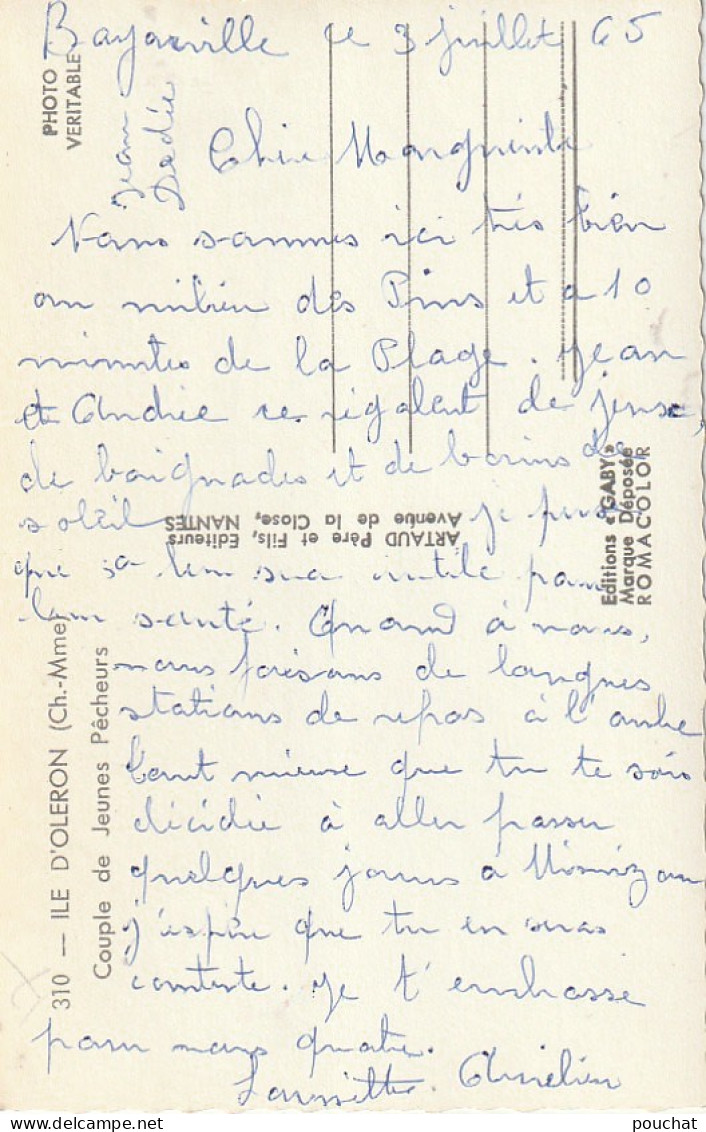 Boyarville ce 3 juillet 65
Chère Marguerite
Nous sommes ici très bien
au milieu des Pins et à 10
minutes de la Plage. Jean
et Andrée se régalent de jeux,
de baignades et de bains de
soleil je pense
que ça leur sera utile pour
leur santé. Quand à nous,
nous faisons de longues
stations de repos à l'ombre
Tant mieux que tu te sois
décidée à aller passer
quelques jours à Mimizan
j'espère que tu en seras
contente. Je t'embrasse
pour nous quatre.
Aurélien
Jean
Dédée
PHOTO
VERITABLE
310 — ILE D'OLERON (Ch.-Mme)
Couple de Jeunes Pêcheurs
ARTAUD Père et Fils, Editeurs
Avenue de la Close, NANTES
Editions « GABY »
Marque Déposée
ROMACOLOR
pouchat